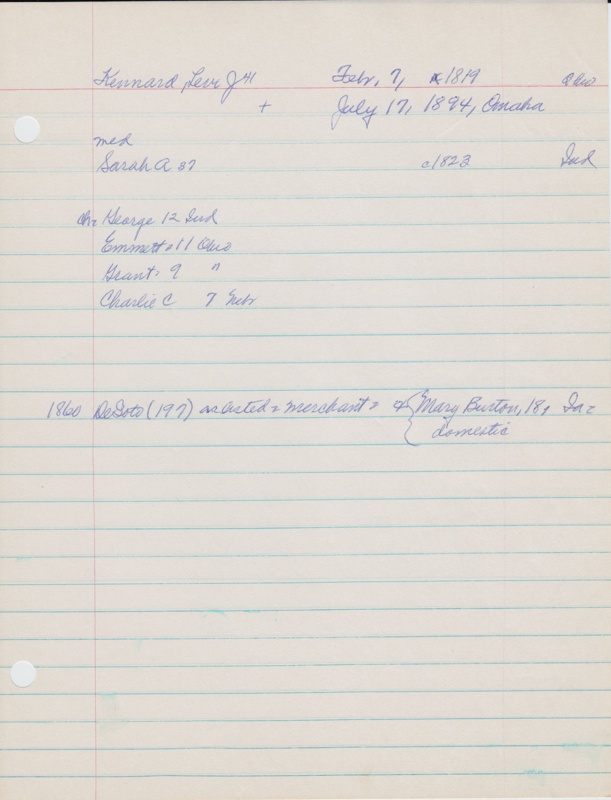 Kennard, Levi J 41 Febr, 7, 1819 Ohio
+ July 17, 1894, Omaha
med
Sarah A 37 c1823 Ind
ch- George 12 Ind
Emmett- 11 Ohio
Grant- 9 "
Charlie C 7 Nebr
1860 DeSoto (197) as listed = merchant = & { Mary Burton, 18, Ia-
domestic